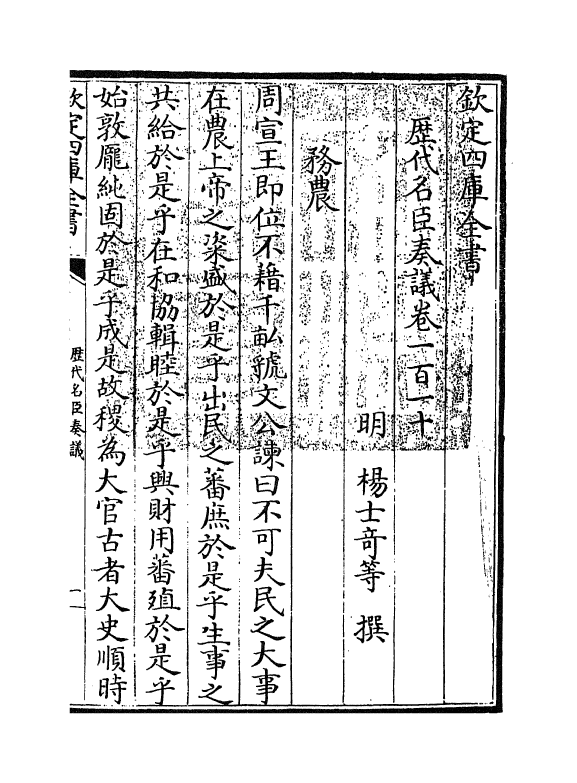 欽定四庫全書
歷代名臣奏議卷一百一十
明 楊士奇等 撰
務農
周宣王即位不藉千畝虢文公諫曰不可夫民之大事
在農上帝之粢盛於是乎出民之蕃庶於是乎生事之
共給於是乎在和協輯睦於是乎興財用蕃殖於是乎
始敦龐純固於是乎成是故稷為大官古者大史順時
欽定四庫全書
歷代名臣奏議
一